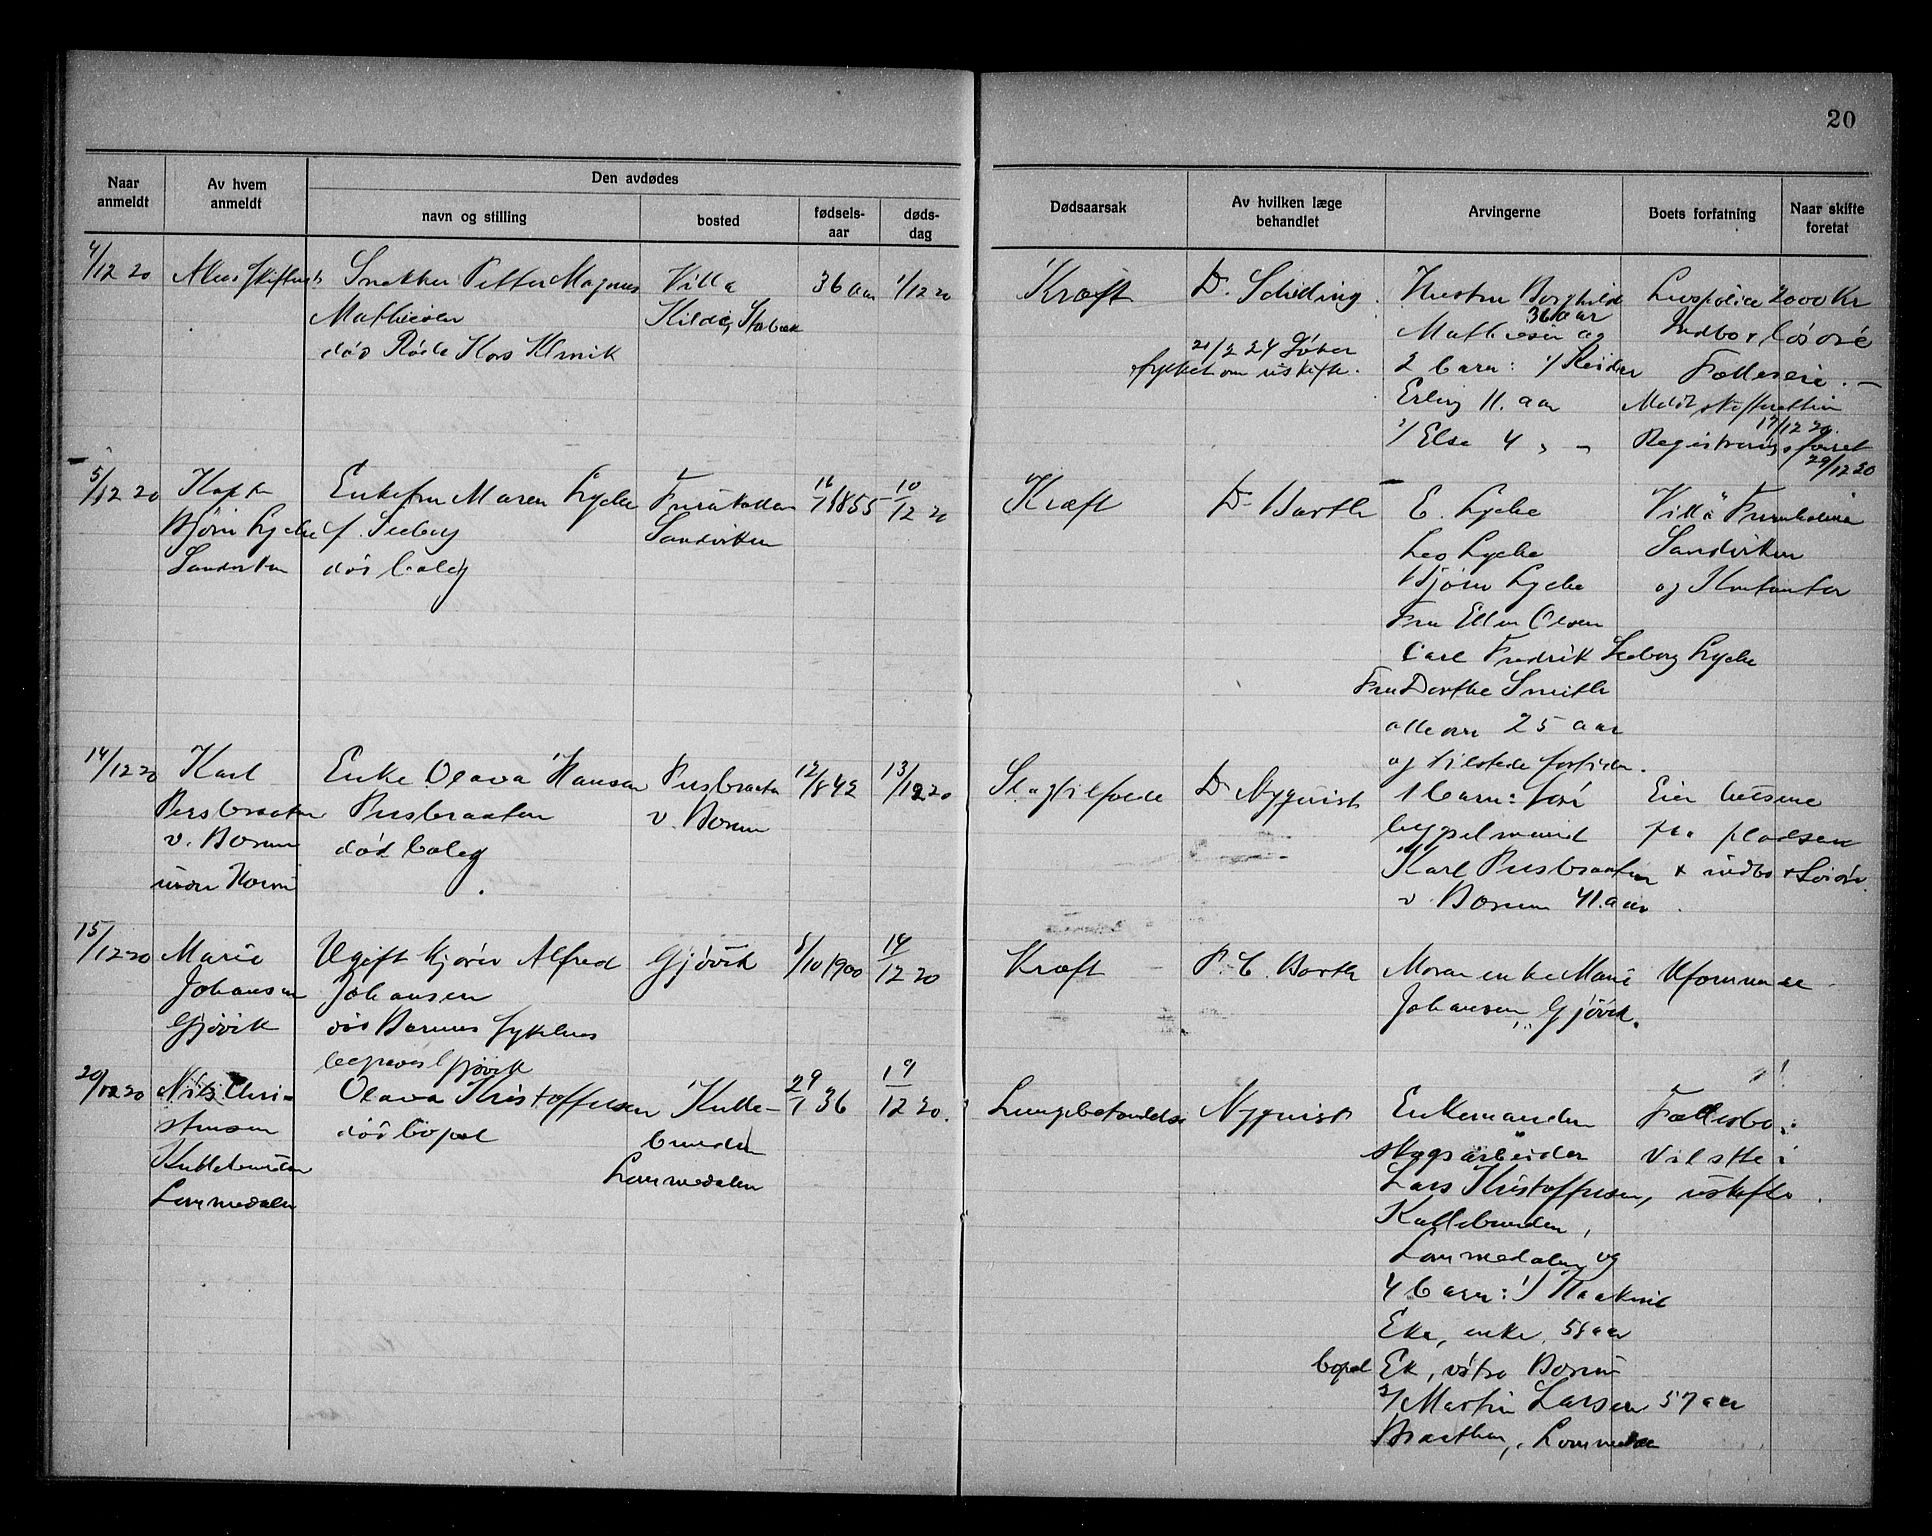 20
Naar anmeldt
Av hvem anmeldt
Den avdødes
navn og stilling
bosted
fødsels-aar
døds-dag
Dødsaarsak
Av hvilken læge behandlet
Arvingerne
Boets forfatning
Naar skifte foretat
4/12 20
Snekker Petter Magnus
Mathiesen
død Røde Kors Klinik
Villa
36 aar
1/12 20
Kræft
D.
Hustru Borghild
36 aar
Mathiesen og
2 barn: 1/ Reidar
Erling 11 aar
2/ Else 4 " -
21/2 24
om uskifte.
2000 Kr
Indbo + løsøre
Fælleseie. -
17/12 20
Registrering
29/12 20
5/12 20
Bjørn Lyche
Sandviken
Enkefru Maren Lyche
f. Seeberg
død bolig
Sandviken
16/7 1855
10/12 20
Kræft
Dr Barth
E. Lyche
Leo Lyche
Bjørn Lyche
Fru Ellen Olsen
Carl Fredrik Seeberg Lyche
Fru Dorthe Smith
alle over 25 aar
og tilstede
Villa
Sandviken
og Kontanter
14/12 20
Karl
Pusbraaten
v. Bærum
Enke Olava Hansen
Pusbraaten
død bolig
Pusbraaten
v. Bærum
12/8 42
13/12 20
Slagtilfælde
Dr Nyquist
1 barn:
Karl Pusbraaten
v. Bærum 41 aar
Eier husene
paa pladsen
+ indbo + løsøre.
15/12 20
Marie
Johansen
Gjøvik
Ugift kjører Alfred
Johansen
død Bærums sykehus
begraves Gjøvik
Gjøvik
5/10 1900
14/12 20
Kræft
P. C. Barth
Moren enke Marie
Johansen, Gjøvik.
Uformuende
20/12 20
Nils Chri-
stensen
Kullebunden
Lommedalen
Olava Kristoffersen
død bopæl
Kulle-
bunden
Lommedalen
29/1 36
19/12 20.
Lungebetændelse
Nyquist
Enkemanden
skogsarbeider
Lars Kristoffersen,
Kullebunden,
Lommedalen og
4 barn: 1/
Eke, enke, 58 aar
bopæl Ek, østre Bærum
2/ Martin Larsen 57 aar
Braathen, Lommedalen
Fællesbo.
Vil sitte i
uskifte.